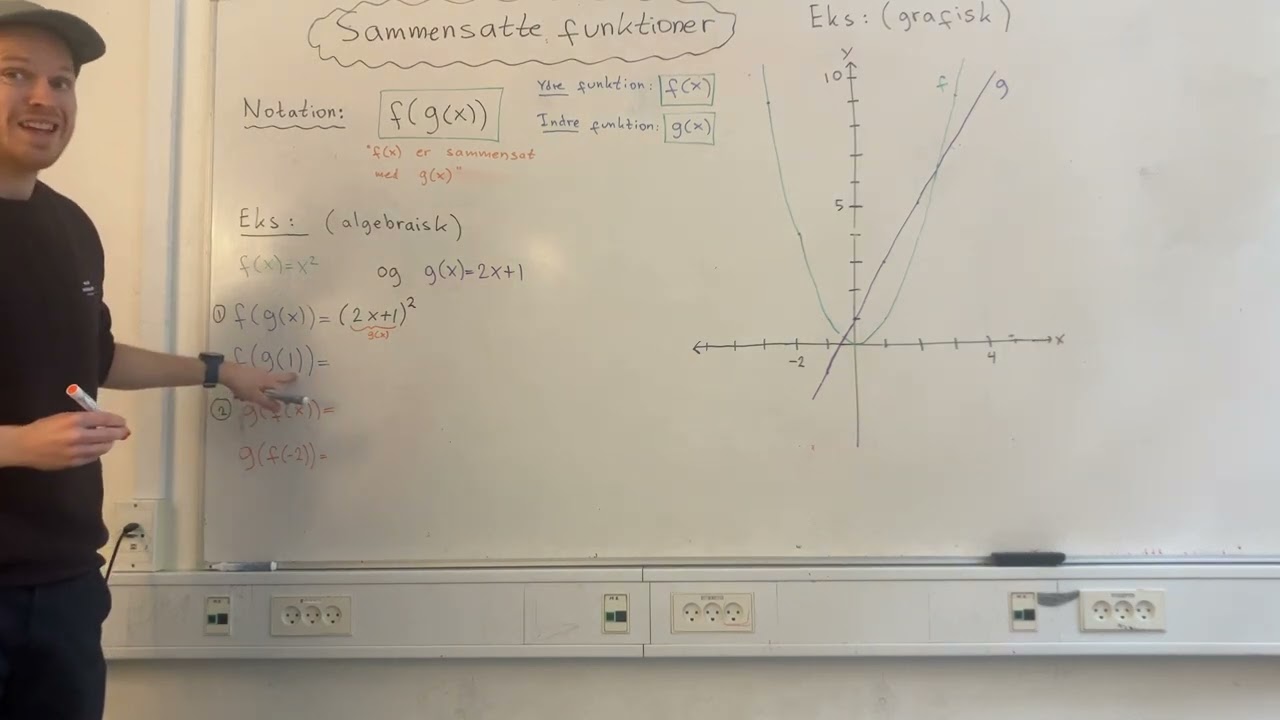 Sammensatte funktioner
Notation: f(g(x))
Ydre funktion: f(x)
Indre funktion: g(x)
"f(x) er sammensat
med g(x)"
Eks: (algebraisk)
f(x)=x² og g(x)=2x+1
① f(g(x))=(2x+1)²
g(x)
f(g(1))=
② g(f(x))=
g(f(-2))=
Eks: (grafisk)
y
10
f
g
5
-2
4
x